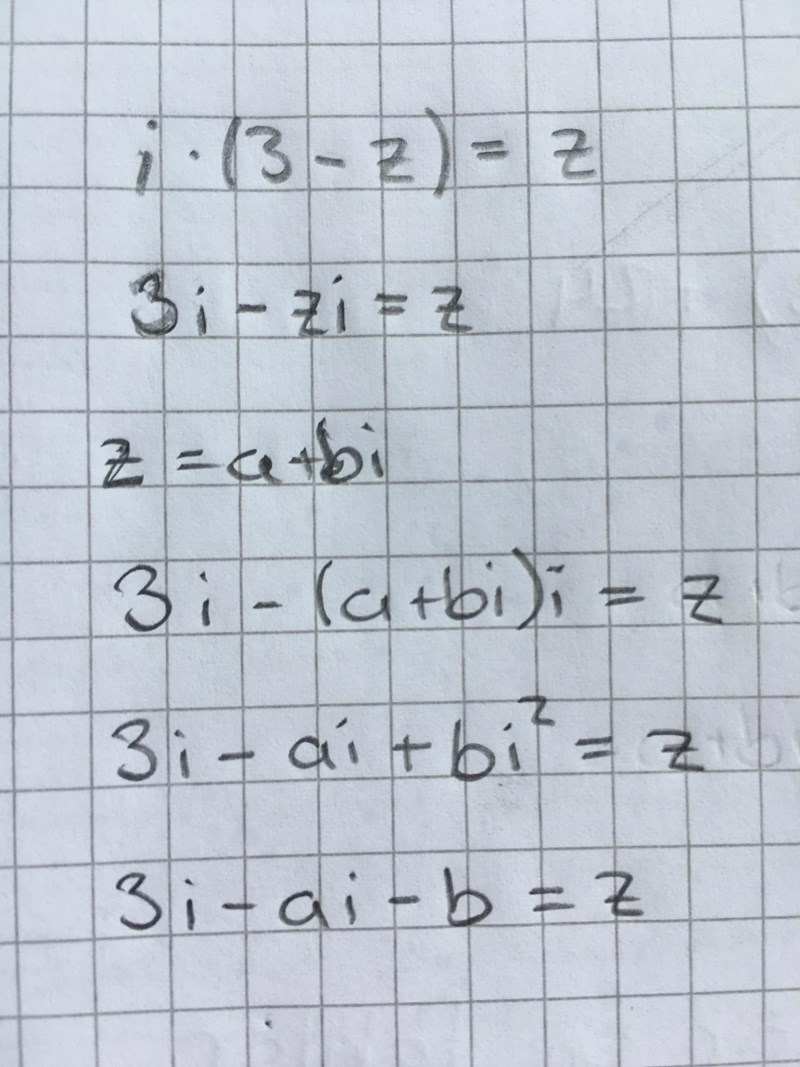 i · (3 - z) = z
3i - zi = z
z = a+bi
3i - (a+bi)i = z
3i - ai + bi² = z
3i - ai - b = z